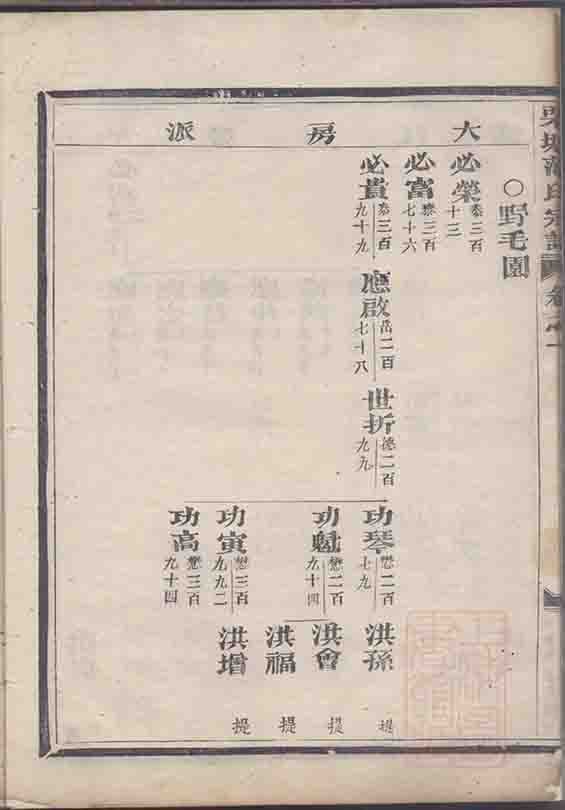 氏宗譜
卷之一
大房派
○野毛園
必榮 泰三百十三
必富 泰三百七十六
必貴 泰三百九十九
應啟 岳二百七十八
世折 德二百九九
功琴 懋二百七九
功魁 懋二百九十四
功寅 懋三百九九二
功高 懋三百九十四
洪孫 提
洪會 提
洪福 提
洪增 提